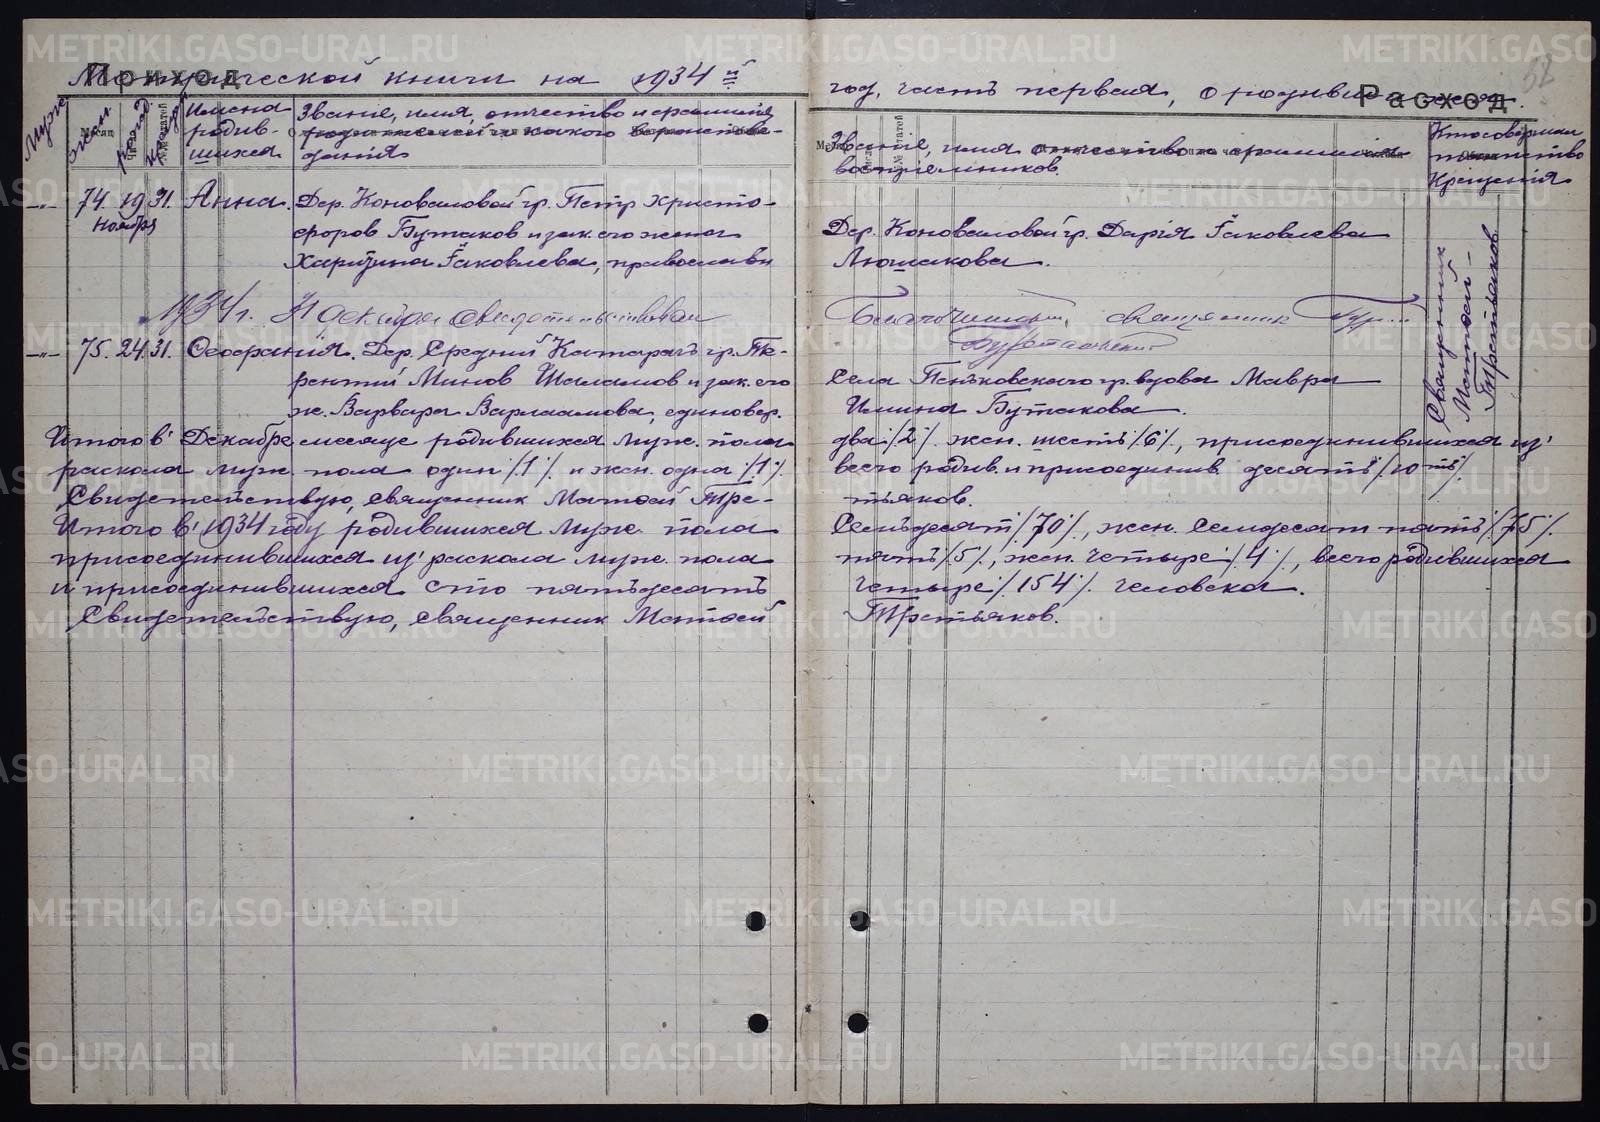 Приход
Метрической книги на 1934 й
год, часть первая, о родившихся.
Расход
52
Муж.
жен.
рожд.
крещ.
Имена
родив-
шихся
Званіе, имя, отчество и фамилія
родителей и какого вѣроиспове-
данія
Званіе, имя отчество и фамилія
воспріемников.
Кто совершал
таинство
Крещенія
-"- 74. 19 31. Анна. Дер. Коноваловой гр. Петр Христо-
Ноября
форов Бутаков и зак. его жена
Харитина Iаковлева, православн
Дер. Коноваловой гр. Дарія Iаковлева
Люшакова.
Священник
Матѳей
Третьяков
1934 г. 31 декабря свидетельствовал
Благочинный, священник
-"- 75. 24. 31. Февранія. Дер. Средний Катарач гр. Те-
рентий Минов Шаламов и зак. его
ж. Варвара Варлаамова, единовер.
Села Пеньковскаго гр. вдова Мавра
Илина Бутакова.
Итого в Декабре месяце родившихся муж. пола
два /2/. жен. шесть /6/, присоединившихся из
раскола муж. пола один /1/. и жен. одна /1/.
всего родив. и присоединив. десять /10ть/.
Свидетельствую, священник Матѳей Тре-
тьяков.
Итого в 1934 году родившихся муж. пола
Семьдесят /70/, жен. Семдесят пять /75/.
присоединившихся из раскола муж. пола
пять /5/, жен. четыре /4/, всего родившихся
и присоединившихся сто пятьдесят
четыре /154/. человека.
Свидетельствую, священник Матѳей
Третьяков.
METRIKI.GASO-URAL.RU